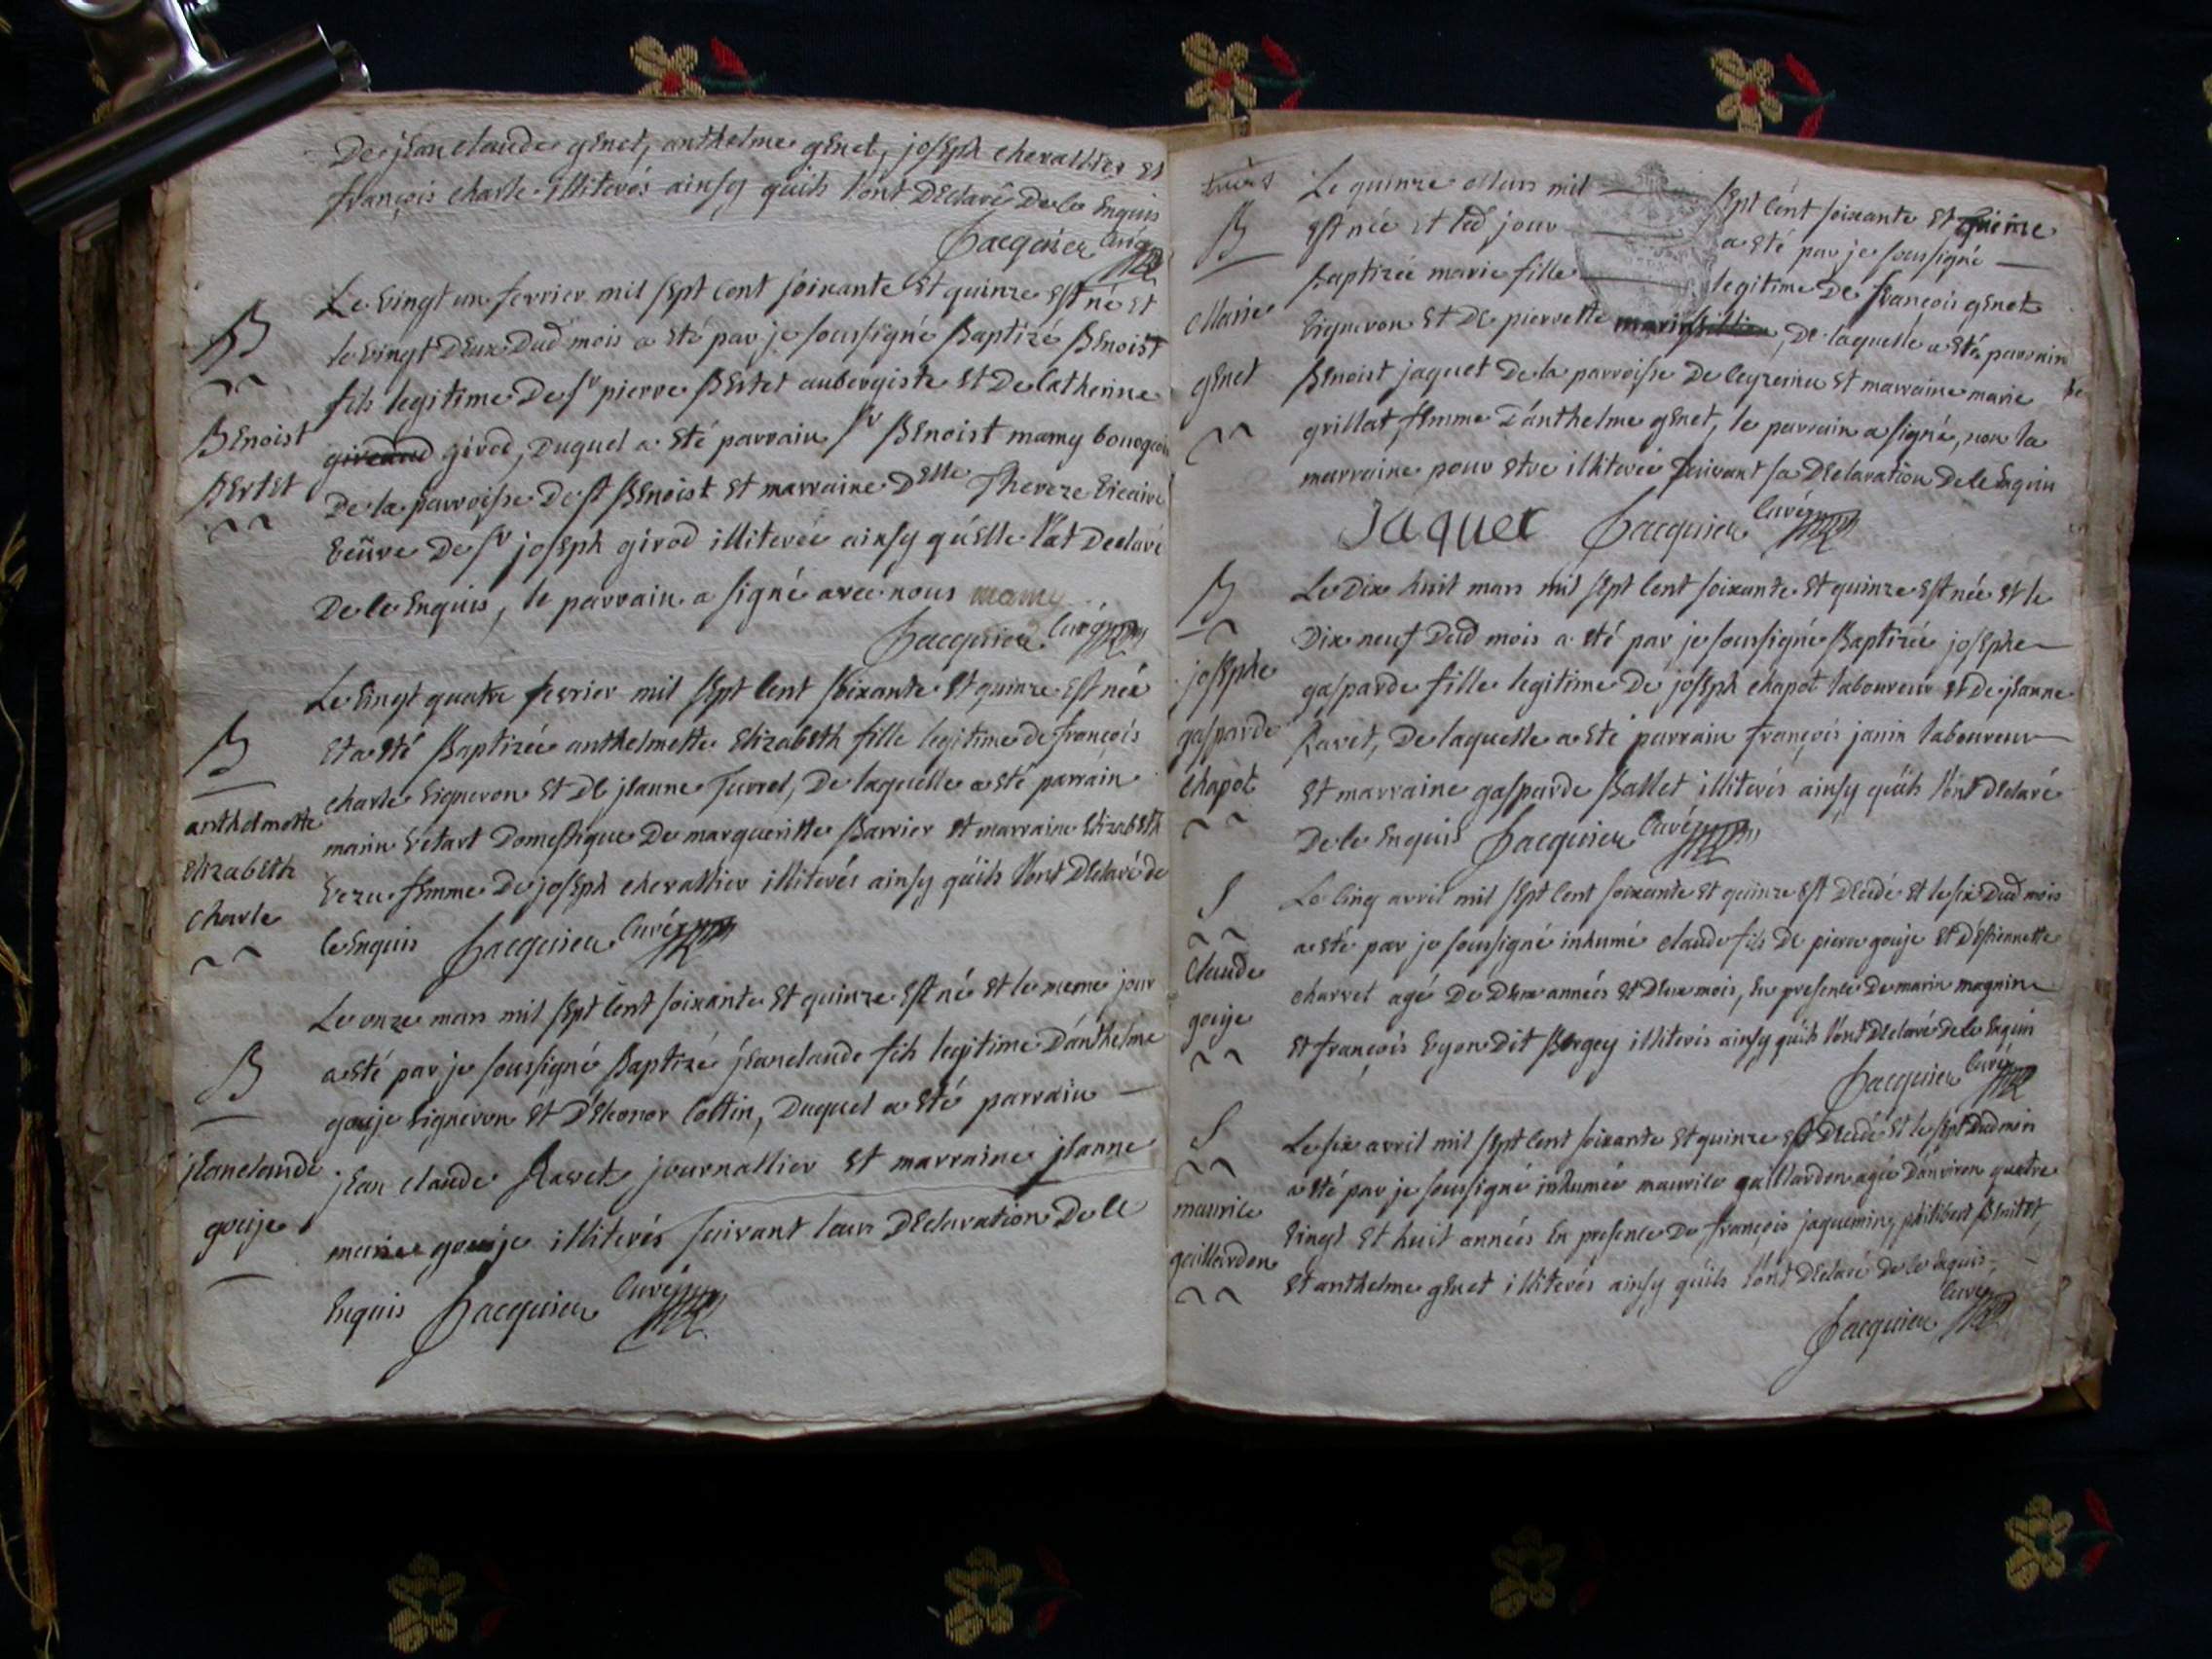 De jean claude genet, anthelme genet, joseph chevallier et
françois charle illiterés ainsy qu'ils l'ont declaré de ce enquis
Jacquier curé
Le vingt un fevrier mil sept cent soixante et quinze est né et
le vingt deux dud mois a été par je soussigné baptizé Benoist
fils legitime de sr pierre Bertet aubergiste et de Catherine
giraud girod, duquel a été parrain sr Benoist mamy bourgeois
de la parroisse de st Benoist et marraine Delle Thereze vicaire
veûve de sr joseph girod illiterée ainsy qu'elle l'at declaré
de ce enquis, le parrain a signé avec nous mamy
Jacquier curé
B
Benoist
Bertet
Le vingt quatre fevrier mil sept cent soixante et quinze est née
et a été baptizée anthelmette Elizabeth fille legitime de françois
charle vigneron et de jeanne Jurret, de laquelle a été parrain
marin vetart domestique de margueritte Barrier et marraine Elizabeth
vezu femme de joseph chevallier illiterés ainsy qu'ils l'ont declaré de
ce enquis Jacquier curé
B
anthelmette
Elizabeth
charle
Le onze mars mil sept cent soixante et quinze est né et le meme jour
a été par je soussigné baptizé jeanclaude fils legitime d'anthelme
gouje vigneron et d'Eleonor Cottin, duquel a été parrain
jean claude Ravet journallier et marraine jeanne
marie gouje illiterés suivant leur declaration de ce
enquis Jacquier curé
B
jeanclaude
gouje
Le quinze mars mil sept cent soixante et quinze
est née et led jour a été par je soussigné
baptizée marie fille legitime de françois genet
vigneron et de pierrette , de laquelle a été parrain
Benoist jaquet de la parroisse de ceyzeirieu et marraine marie
grillat femme d'anthelme genet, le parrain a signé, non la
marraine pour etre illiterée suivant sa declaration de ce enquis
Jaquet Jacquier curé
B
Marie
genet
Le dix huit mars mil sept cent soixante et quinze est née et le
dix neuf dud mois a été par je soussigné baptizée josephe
gasparde fille legitime de joseph chapot laboureur et de jeanne
Ravet, de laquelle a été parrain françois janin laboureur
et marraine gasparde Ballet illiterés ainsy qu'ils l'ont declaré
de ce enquis Jacquier curé
B
josephe
gasparde
chapot
Le cinq avril mil sept cent soixante et quinze est decedé et le six dud mois
a été par je soussigné inhumé claude fils de pierre gouje et d'estiennette
charvet agé de deux années et deux mois, en presence de marin magnin
et françois vyon dit Bergey illiterés ainsy qu'ils l'ont declaré de ce enquis
Jacquier curé
S
Claude
gouje
Le six avril mil sept cent soixante et quinze est decedé et le sept dud mois
a été par je soussigné inhumée maurice gaillardon agée d'environ quatre
vingt et huit années en presence de françois jaquemin, philibert Benitet,
et anthelme genet illiterés ainsy qu'ils l'ont declaré de ce enquis,
Jacquier curé
S
maurice
gaillardon